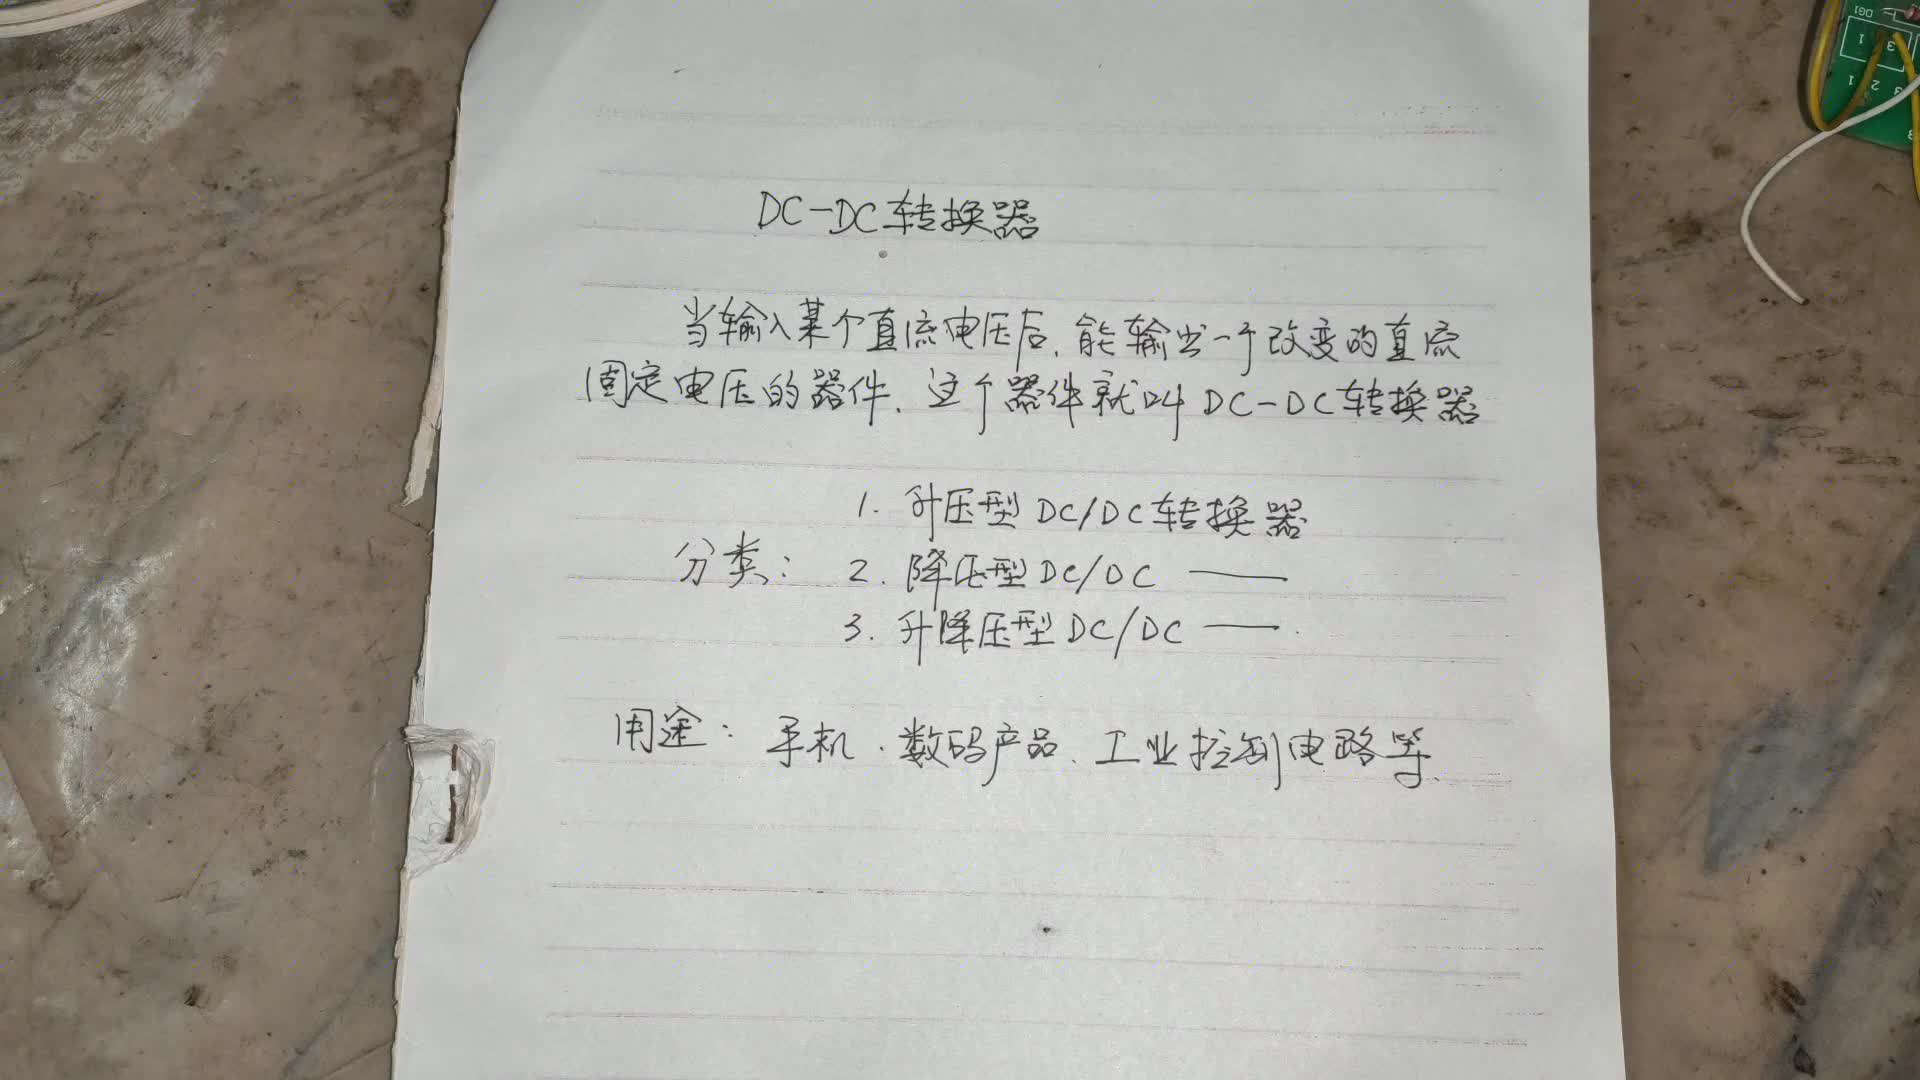 DC-DC转换器
当输入某个直流电压后,能输出一个改变的直流
固定电压的器件.这个器件就叫DC-DC转换器
1. 升压型DC/DC转换器
分类: 2. 降压型DC/DC ——
3. 升降压型DC/DC ——.
用途: 手机、数码产品、工业控制电路等.
DG1
1 3
1 2 3